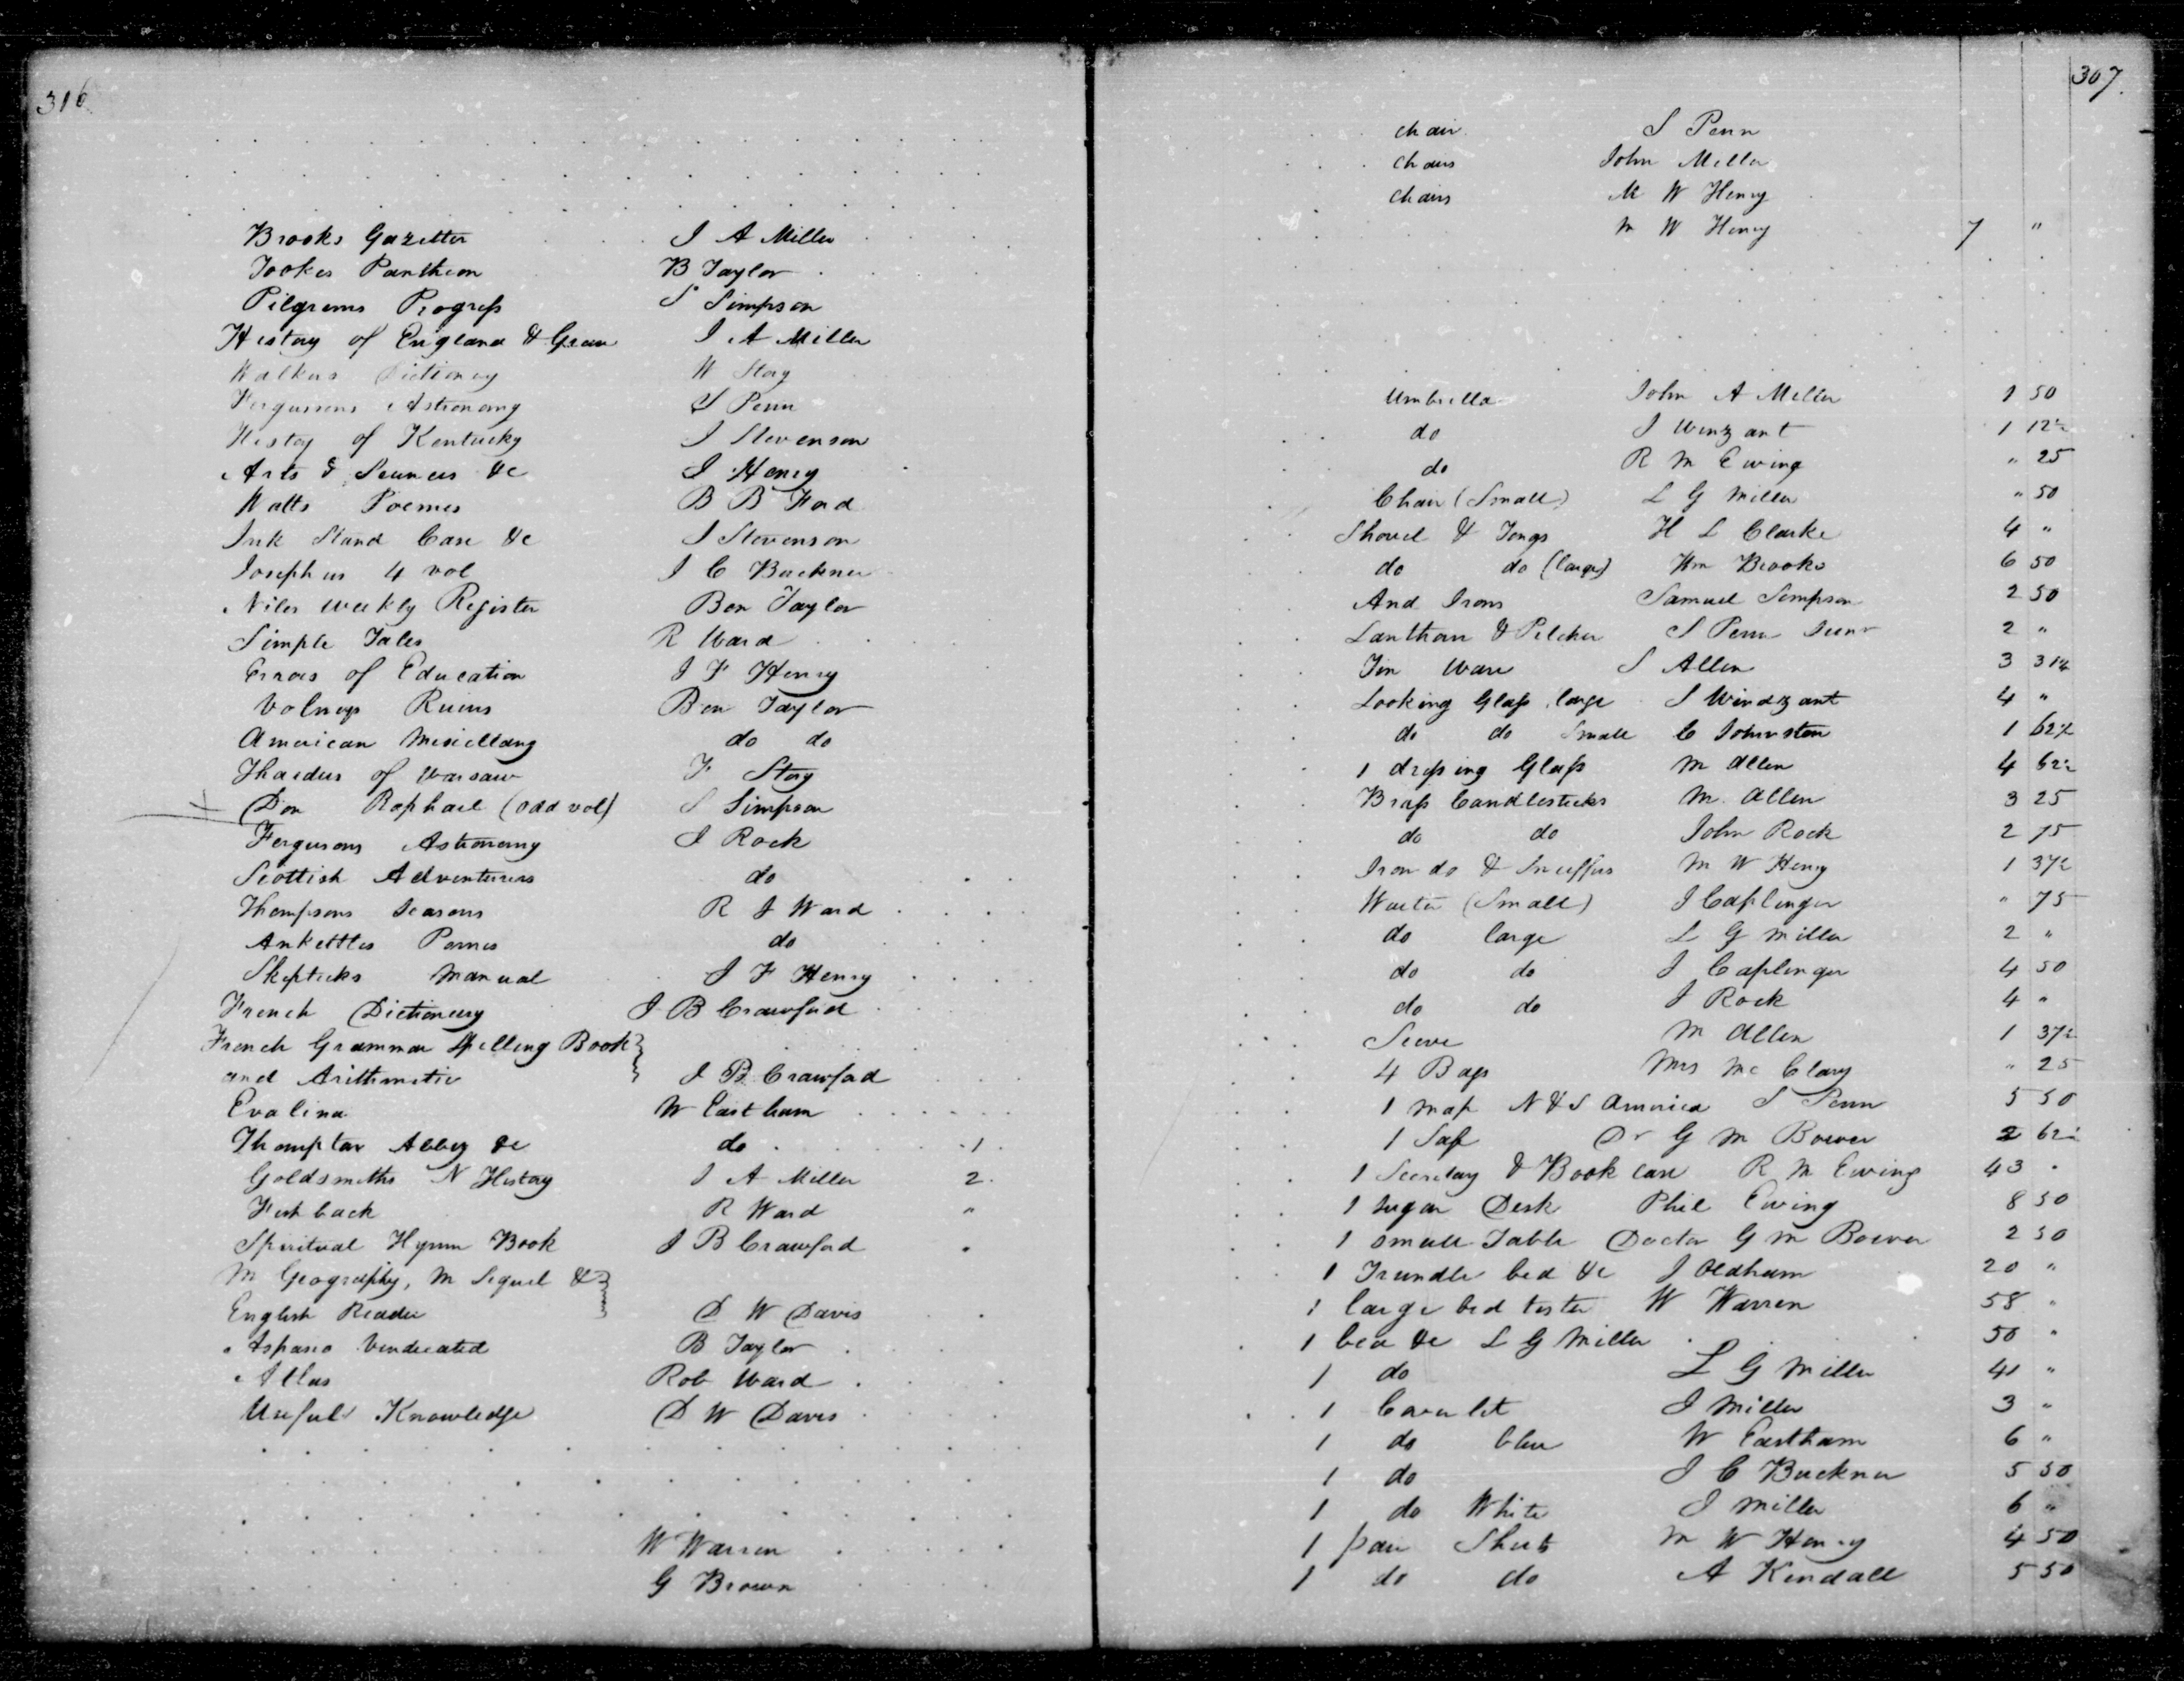 316
Brooks Gazetter J A Miller
Tookes Pantheon B Taylor
Pilgrims Progress S Simpson
History of England & Greece J A Miller
Walkers Dictionary W Story
Fergussons Astronomy S Penn
History of Kentucky J Stevenson
Arts & Sciences &c J Henry
Watts Poemes B B Ford
Ink Stand Case &c J Stevenson
Josephus 4 vol J C Buckner
Niles weekly Register Ben Taylor
Simple Tales R Ward
Errors of Education J F Henry
Volneys Ruins Ben Taylor
American Miscellany do do
Thaddus of Warsaw F Story
Don Raphael (odd vol) S Simpson
Fergusons Astronomy J Rock
Scottish Adventurers do
Thompsons Seasons R J Ward
Ankettles Pomes do
Skepticks Manual J F Henry
French Dictionary J B Crawford
French Grammar Spelling Book
and Arithmetic J B Crawford
Evalina W Eastham
Abbey &c do 1
Goldsmiths N History J A Miller 2
Fishback R Ward "
Spiritual Hymn Book J B Crawford
M Geography, M Sequel &
English Reader D W Davis
Aspasio Vindicated B Taylor
Atlas Rob Ward
Useful Knowledge D W Davis
W Warren
G Brown
307
chair S Penn
chairs John Miller
chairs M W Henry
M W Henry 7 "
Umbrella John A Miller 1 50
do J Winzant 1 12½
do R M Ewing " 25
Chair (Small) L G Miller " 50
Shovel & Tongs H L Clarke 4 "
do do (large) Wm Brooks 6 50
And Irons Samuel Simpson 2 50
Lanthorn & Pitcher S Penn Senr 2 "
Tin Ware S Allen 3 31¼
Looking Glass large S Windzant 4 "
do do Small C Johnston 1 62½
1 dressing Glass M Allen 4 62½
Brass Candlesticks M. Allen 3 25
do do John Rock 2 75
Iron do & Snuffers M W Henry 1 37½
Waiter (Small) J Caplinger " 75
do large L G Miller 2 "
do do J Caplinger 4 50
do do J Rock 4 "
Sieve M Allen 1 37½
4 Bags Mrs Mc Clary " 25
1 map N & S America S Penn 5 50
1 Safe Dr G M Bower 2 62½
1 Secretary & Book case R M Ewing 43
1 sugar Desk Phil Ewing 8 50
1 small Table Doctor G M Bower 2 50
1 Trundle bed &c J Oldham 20 "
1 large bed tester W Warren 58 "
1 bed &c L G Miller 50 "
1 do L G Miller 41 "
1 Coverlet J Miller 3 "
1 do blue W Eastham 6 "
1 do J C Buckner 5 50
1 do White J Miller 6 "
1 pair Sheets M W Henry 4 50
1 do do A Kendall 5 50